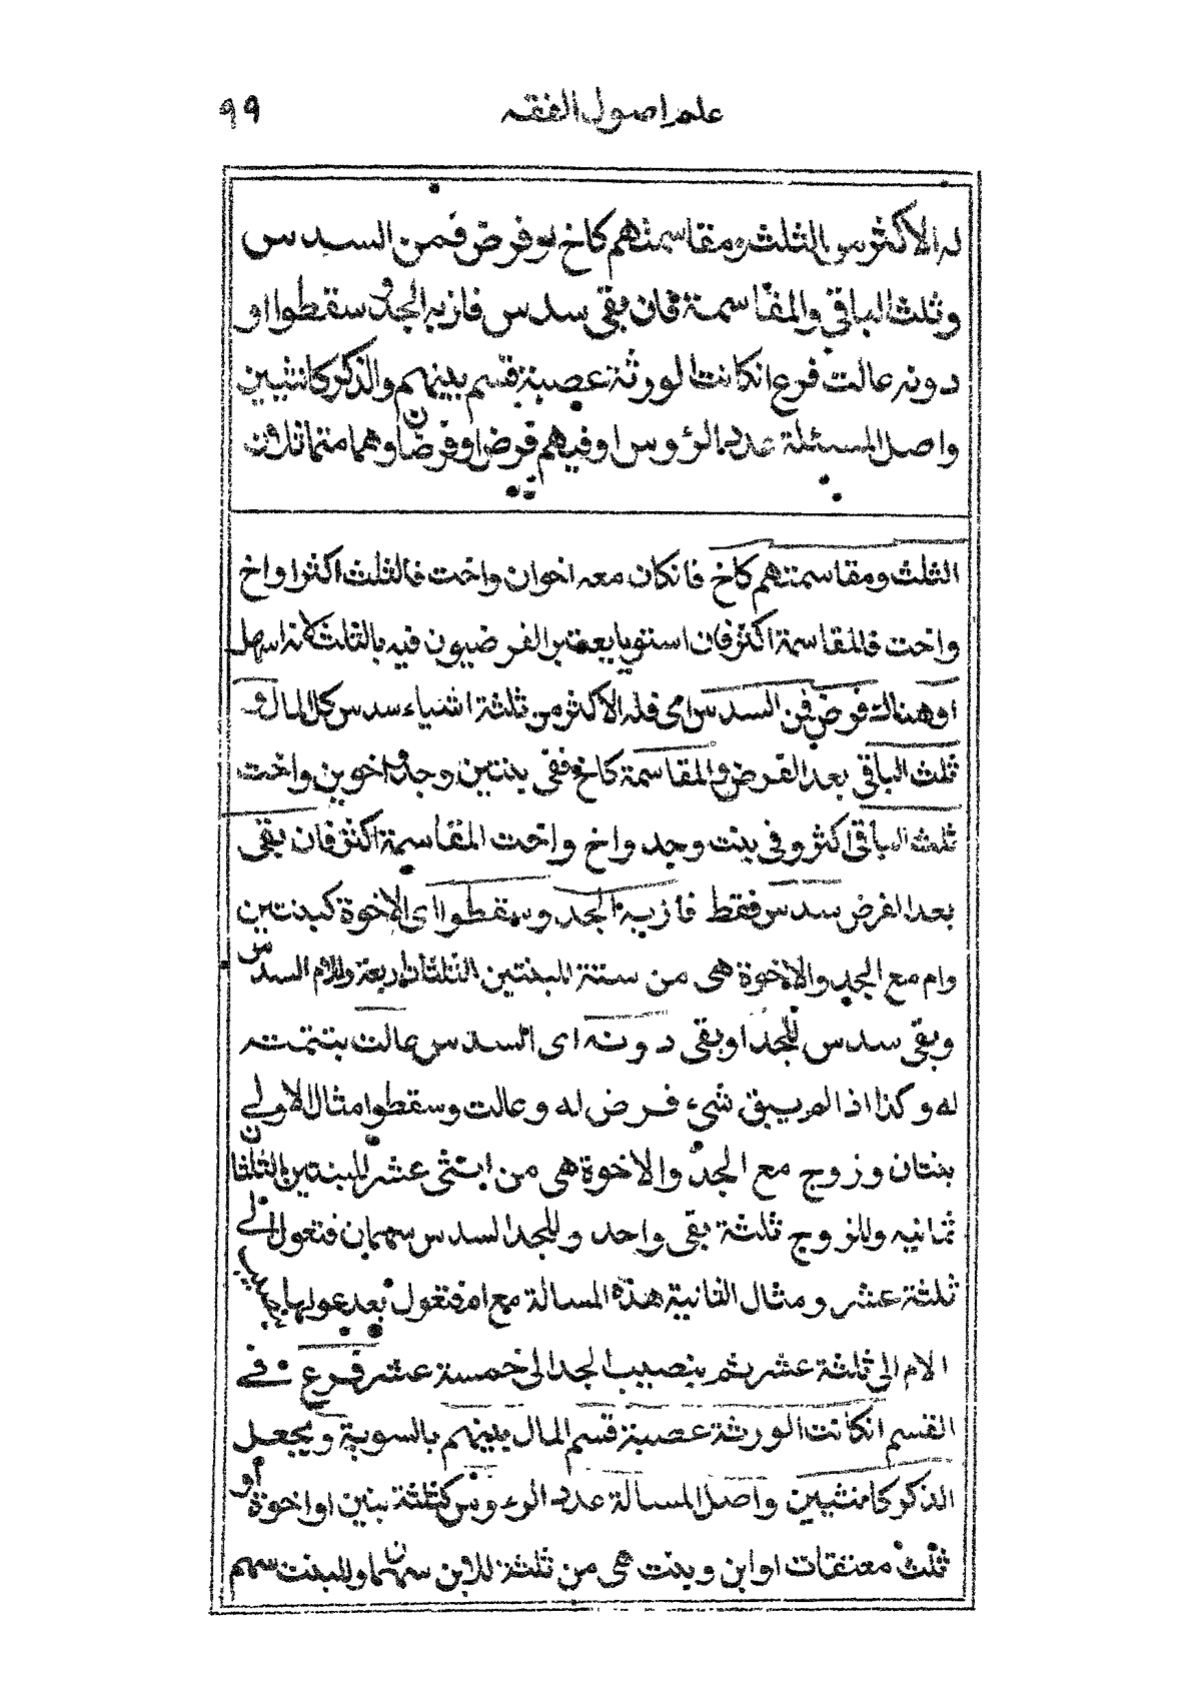 علم اصول الفقه
٩٩
له الاكثر من الثلث ومقاسمتهم كاخ او فرض فمن السدس
وثلث الباقي والمقاسمة فان بقي سدس فاز به الجد وسقطوا او
دونه عالت فرع ان كانت الورثة عصبة قسم بينهم والذكر كانثيين
واصل المسئلة عدد الرؤوس او فيهم فرض او فرضان وهما متماثلان
الثلث ومقاسمتهم كاخ فانكان معه اخوان واخت فالثلث اكثر او اخ
واخت فالمقاسمة اكثر فان استويا يعتبر الفرضيون فيه بالثلث لانه اسهل
او هناك فرض فمن السدس اى فله الاكثر من ثلثة اشياء سدس كل المال و
ثلث الباقي بعد الفرض والمقاسمة كاخ ففى بنتين وجد واخوين واخت
ثلث الباقي اكثر وفى بنت وجد واخ واخت المقاسمة اكثر فان بقى
بعد الفرض سدس فقط فاز به الجد وسقطوا اى الاخوة كبنتين
وام مع الجد والاخوة هى من ستة للبنتين الثلثان اربعة وللام السدس
وبقى سدس للجد او بقى دونه اى السدس عالت بتتمته
له وكذا اذا لم يبق شىء فرض له وعالت وسقطوا مثال الاولى
بنتان وزوج مع الجد والاخوة هى من اثنى عشر للبنتين الثلثان
ثمانيه وللزوج ثلثة بقى واحد وللجد السدس سهمان فتعول الى
ثلثة عشر ومثال الثانية هذه المسالة مع ام فتعول بعد عولها بنصيب
الام الى ثلثة عشر ثم بنصيب الجد الى خمسة عشر فرع فى
القسم انكانت الورثة عصبة قسم المال بينهم بالسوية ويجعل
الذكر كانثيين واصل المسالة عدد الرءوس كثلثة بنين او اخوة او
ثلث معتقات او ابن وبنت هى من ثلثة للابن سهمان وللبنت سهم